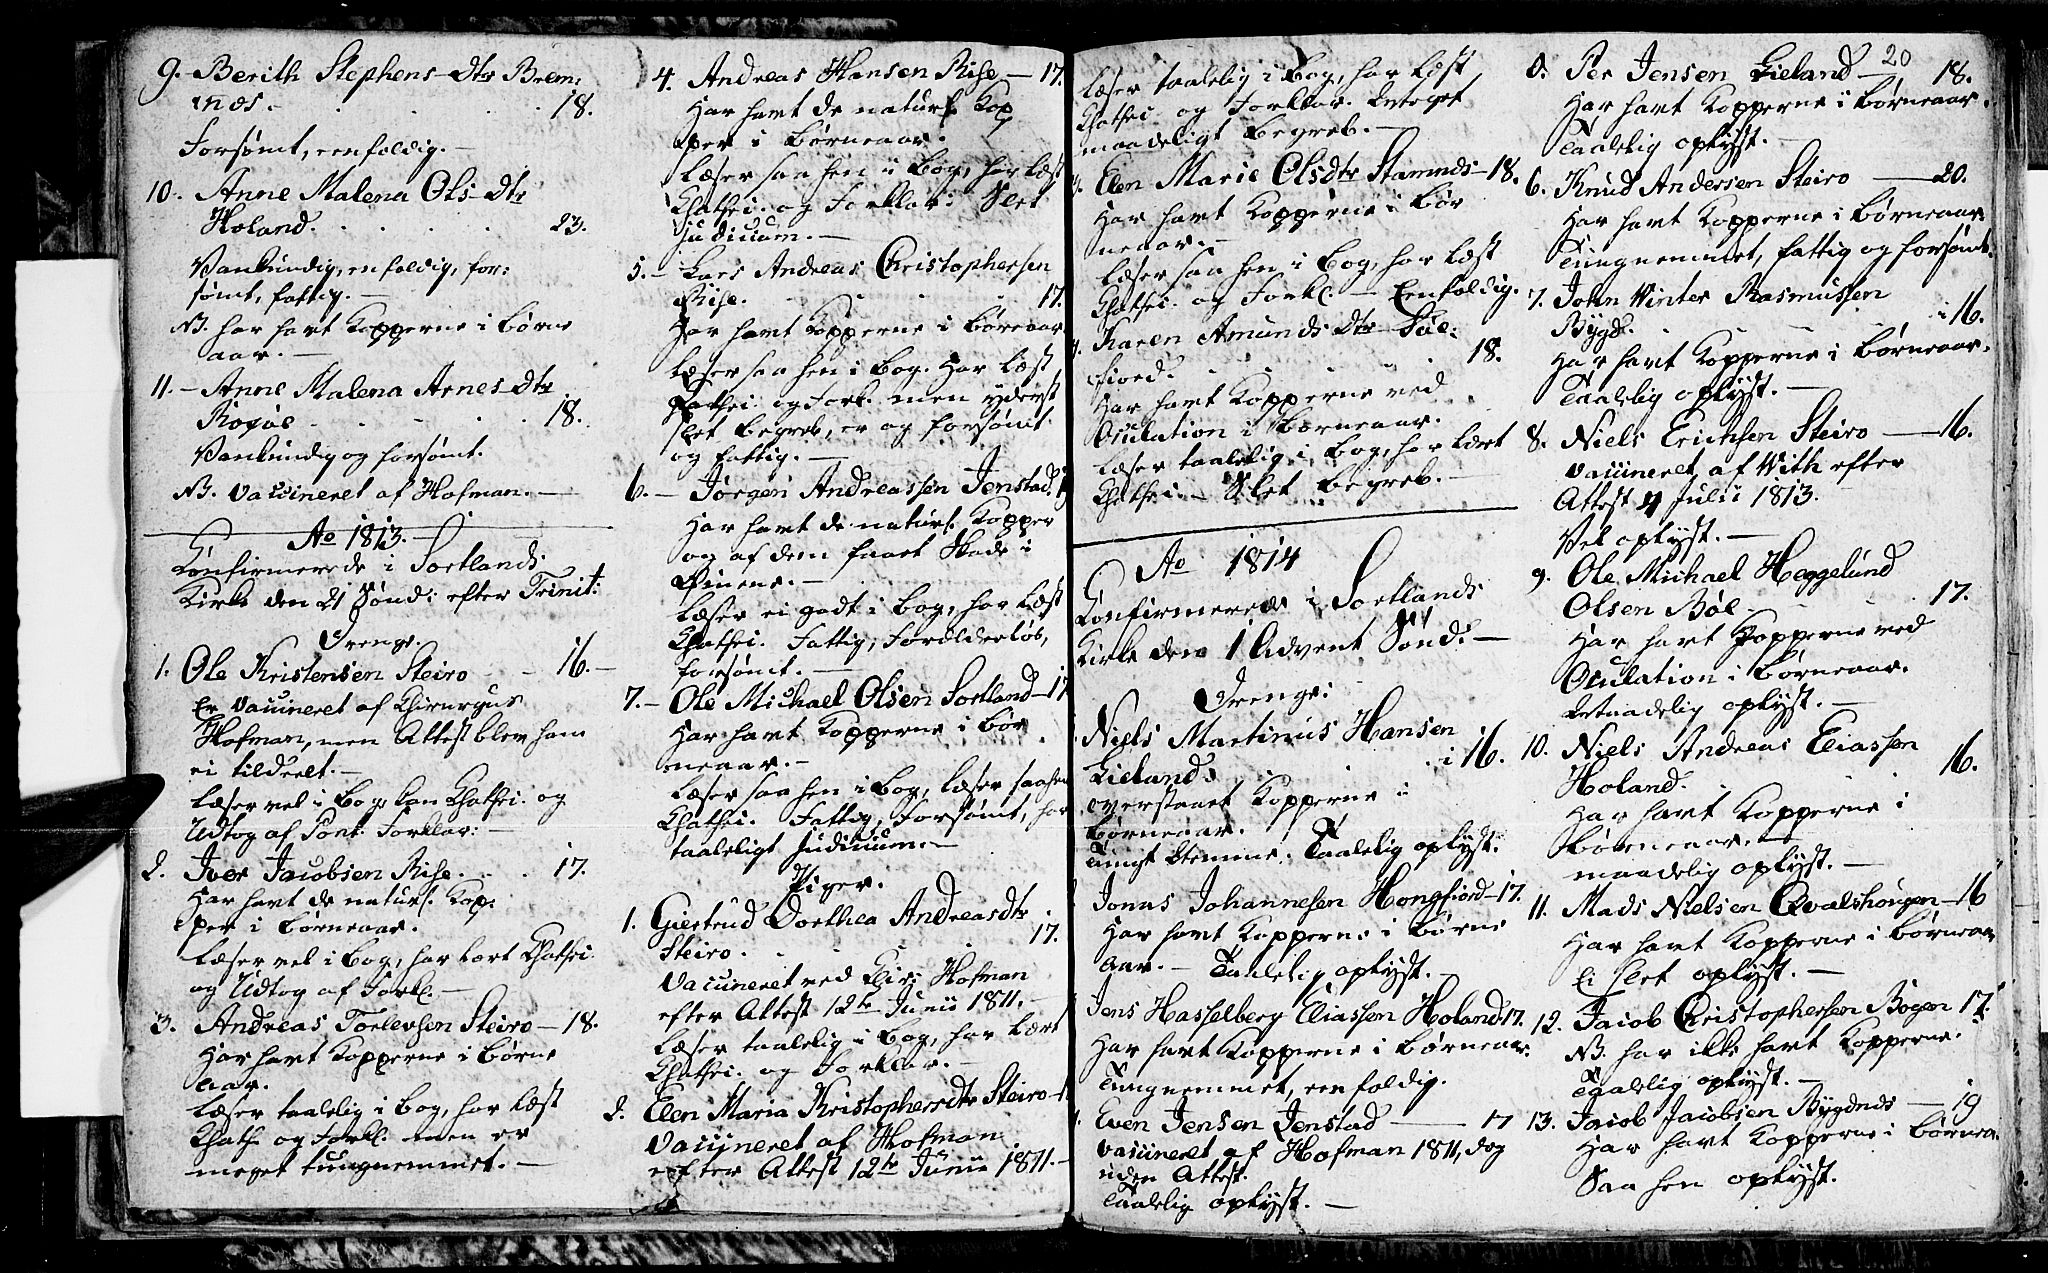 9. Berith Stephens-Dtr Brem,
næs. . . . 18.
Forsømt, eenfoldig. —
10. Anne Malena Ols-Dtr
Holand. . . . 23.
Vankundig, enfoldig, for:
sømt, fattig. —
NB. har havt Kopperne i Børne
aar. —
11. — Anne Malena Arnes-Dtr
Rogøe . . . 18.
Vankundig og forsømt.
NB. vaccineret af Hofman. —
Ao 1813. —
Confirmerede i Sortlands
Kirke den 21 Sønd: efter Trinit:
Drenge.
1. Ole Kristensen Steiro - - 16. —
Er vaccineret af Chirurgus
Hofman, men Attest blev ham
ei tildeelt. —
Læser vel i Bog, kan Chathei. og
Udtog af Pont. Forklar: —
2. Iver Jacobsen Rise. . . 17.
Har havt de naturl. Kop:
per i Børneaar.
Læser vel i Bog, har lært Chathei.
og Udtog af Forkl. —
3. Andreas Torlevsen Steiro — 18.
Har havt Kopperne i Børne
aar.
Læser taalelig i Bog, har læst
Chathe og Forkl. men er
meget tungnemmet. —
4. Andreas Hansen Rise — 17.
Har havt de naturl. Kop
per i Børneaar.
Læser saa hen i Bog, har læst
Chathei. og Forklar: Slet
judicium. —
5. — Lars Andreas Christophersen
Rise. . . . 17.
Har havt Kopperne i Børneaar.
Læser saa hen i Bog. Har læst
Chathei. og Fork. men yderst
slet Begreb, er og forsømt
og fattig. —
6. — Jørgen Andreassen Jenstad.
Har havt de naturl. Kopper
og af dem faaet Skade i
Øinene. —
Læser ei godt i Bog, har læst
Chathei. Fattig, Forælderløs,
forsømt. —
7. — Ole Michael Olsen Sortland — 17
Har havt Kopperne i Bør
neaar. —
Læser saa hen i Bog, læser saahen
Chathei. Fattig, Forsømt, har
taaleligt judicium. —
Piger.
1. Giertrud Dorthea Andreasdtr
Steiro. . . . 17.
Vaccineret ved Chir: Hofman
efter Attest 12te Junii 1811. —
Læser taalelig i Bog, har lært
Chathei. og Forklar. —
2. Elen Maria Kristophersdtr Steiro —
Vaccineret af Hofman
efter Attest 12te Junii 1811. —
læser taalelig i Bog, har læst
Chathei og Forklar. Detoget
maadeligt Begreb. —
Elen Marie Olsdtr Stamnæs — 18.
Har havt Kopperne i Bør
neaar. —
Læser saa hen i Bog, har læst
Chathei. og Forkl. — Eenfoldig.
Karen Amunds Dtr Søe:
fiord. . . . 18.
Har havt Kopperne ved
Oculation i Børneaar.
Læser taalelig i Bog, har lært
Chathei — Slet Begreb. —
Ao 1814
Confirmerede i Sortlands
Kirke den 1 Advent Sønd: —
Drenge:
Niels Martinus Hansen
Lieland. . . . 16.
overstaaet Kopperne i
Børneaar.
Svagt Stemme. Taalelig oplyst.
Jonas Johannesen Hongfiord — 17.
Har havt Kopperne i Børne
aar. — Taalelig oplyst. —
Jens Hasselberg Eliassen Holand 17.
Har havt Kopperne i Børneaar.
Tungnemmet, eenfoldig.
Even Jensen Jenstad — 17
vaccineret af Hofman 1811, dog
uden Attest.
Taalelig oplyst. —
20
5. Per Jensen Lieland — 18.
Har havt Kopperne i Børneaar.
Taalelig oplyst. —
6. Knud Andersen Steiro — 20.
Har havt Kopperne i Børneaar
Tungnemmet, fattig og forsømt.
7. John Winter Rasmussen
Bygd. . . . 16.
Har havt Kopperne i Børneaar.
Taalelig oplyst. —
8. Niels Erichsen Steiro — 16.
vaccineret af With efter
Attest 4 Julii 1813.
Vel oplyst. —
9. Ole Michael Heggelund
Olsen Bøe. . . . 17.
Har havt Kopperne ved
Oculation i Børneaar.
maadelig oplyst. —
10. Niels Andreas Eliassen
Holand. . . . 16.
Har havt Kopperne i
Børneaar. —
maadelig oplyst. —
11. Mads Nielsen Qvalshougen — 16
Har havt Kopperne i Børneaar
Ei slet oplyst. —
12. Jacob Christophersen Bogen 17.
NB. har ikke havt Kopperne.
Taalelig oplyst. —
13. Jacob Jacobsen Bygdnæs — 19
Har havt Kopperne i Børnea.
Saa hen oplyst.